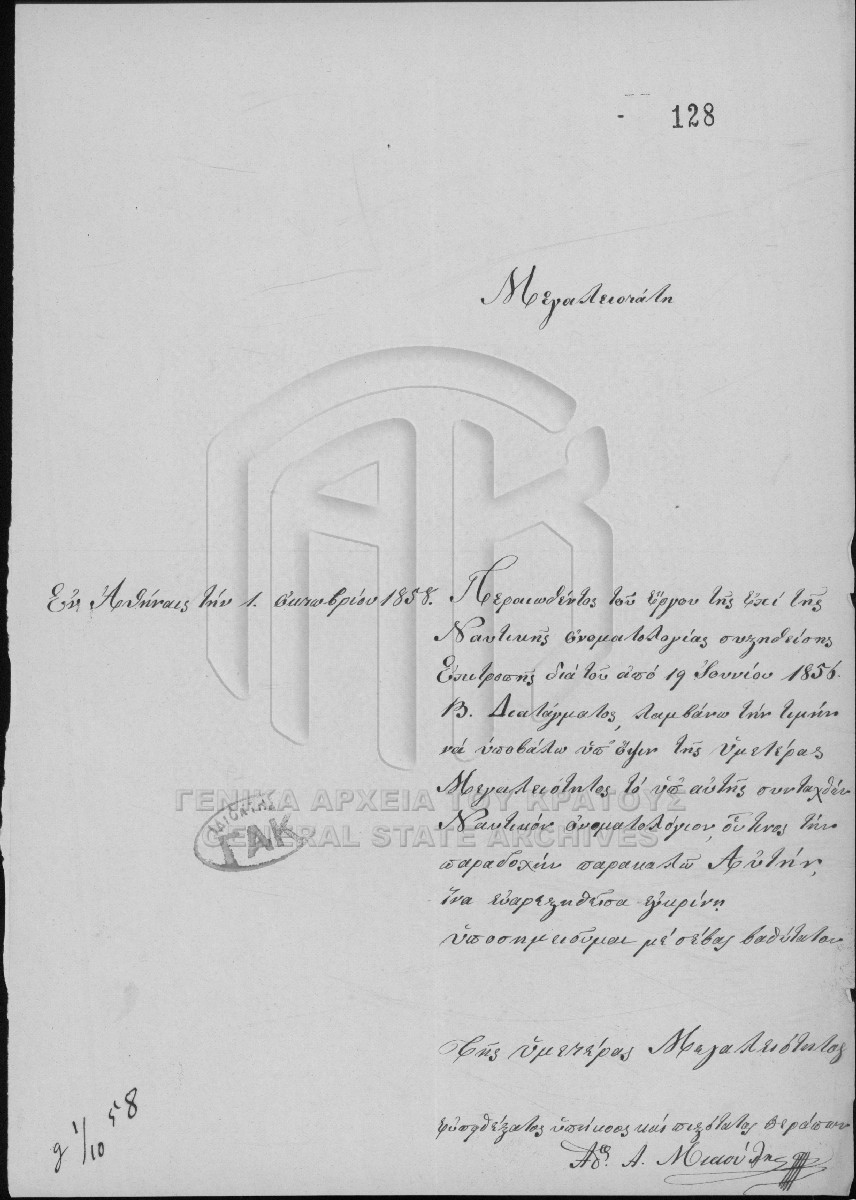 128
Μεγαλειοτάτη
Ἐν Ἀθήναις τήν 1. ὀκτωβρίου 1858.
Περαιωθέντος τοῦ ἔργου τῆς ἐπί τῆς
Ναυτικῆς ὀνοματολογίας συστηθείσης
Ἐπιτροπῆς διά τοῦ ἀπό 19 Ἰουνίου 1856
Β. Διατάγματος, λαμβάνω τήν τιμήν
νά ὑποβάλω ὑπ' ὄψιν τῆς ὑμετέρας
Μεγαλειότητος τό ὑπ' αὐτῆς συνταχθέν
Ναυτικόν ὀνοματολόγιον, οὗτινος τήν
παραδοχήν παρακαλῶ Αὐτήν,
ἵνα εὐαρεστηθεῖσα ἐγκρίνῃ
ὑποσημειοῦμαι μέ σέβας βαθύτατον
Τῆς ὑμετέρας Μεγαλειότητος
εὐπειθέστατος ὑπήκοος καί πιστότατος θεράπων
Α. Μιαούλης
1/10 58
ΓΑΚ
ΓΕΝΙΚΑ ΑΡΧΕΙΑ ΤΟΥ ΚΡΑΤΟΥΣ
GENERAL STATE ARCHIVES